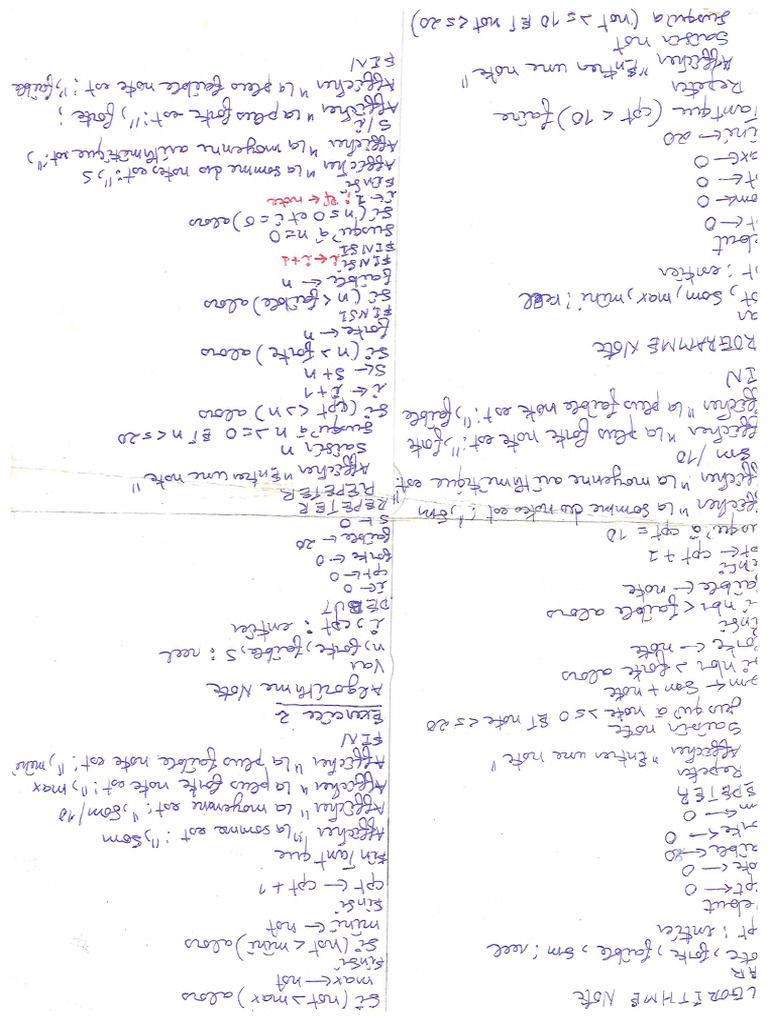 LGORITHME NOTE
AR
ote, forte, faible, som : reel
pt : entier
ebut
pt ← 0
ote ← 0
aible ← 20
rte ← 0
m ← 0
EPETER
Repeter
Afficher "Entrer une note"
Saisir note
jusqu'à note >= 0 ET note <= 20
om ← som + note
i nbr > forte alors
orte ← note
insi
i nbr < faible alors
aible ← note
insi
pt ← cpt + 1
usqu'à cpt = 10
fficher "la somme des note est : ", som
fficher "la moyenne arithmétique est "
som /10
fficher "la plus forte note est : ", forte
fficher "la plus faible note est : ", faible
IN
ROGRAMME NOTE
ar
ot, som, max, mini : reel
pt : entier
ebut
t ← 0
om ← 0
t ← 0
ax ← 0
ini ← 20
Tantque (cpt < 10) faire
Repeter
Afficher "Entrer une note"
Saisir not
Jusqu'à (not >= 10 ET not <= 20)
Si (not > max) alors
max ← not
Finsi
Si (not < mini) alors
mini ← not
Finsi
cpt ← cpt + 1
FinTantque
Afficher "la somme est : ", som
Afficher "la moyenne est : ", som/10
Afficher "la plus forte note est : ", max
Afficher "la plus faible note est : ", mini
FIN
Exercice 2
Algorithme Note
Var
n, forte, faible, S : reel
i, cpt : entier
DEBUT
i ← 0
cpt ← 0
forte ← 0
faible ← 20
S ← 0
REPETER
REPETER
Afficher "Entrer une note"
Saisir n
Jusqu'à n >= 0 ET n <= 20
Si (cpt <> n) alors
i ← i + 1
S ← S + n
Si (n > forte) alors
forte ← n
FINSI
Si (n < faible) alors
faible ← n
FINSi i ← i + 1
FINSI
Jusqu'à n = 0
Si (n = 0 et i = 0) alors
i ← 1 ; f ← note
FinSi
Afficher "la somme des notes est : ", S
Afficher "la moyenne arithmétique est : ",
S/i
Afficher "la plus forte est : ", forte ;
Afficher "la plus faible note est : ", faible
FIN